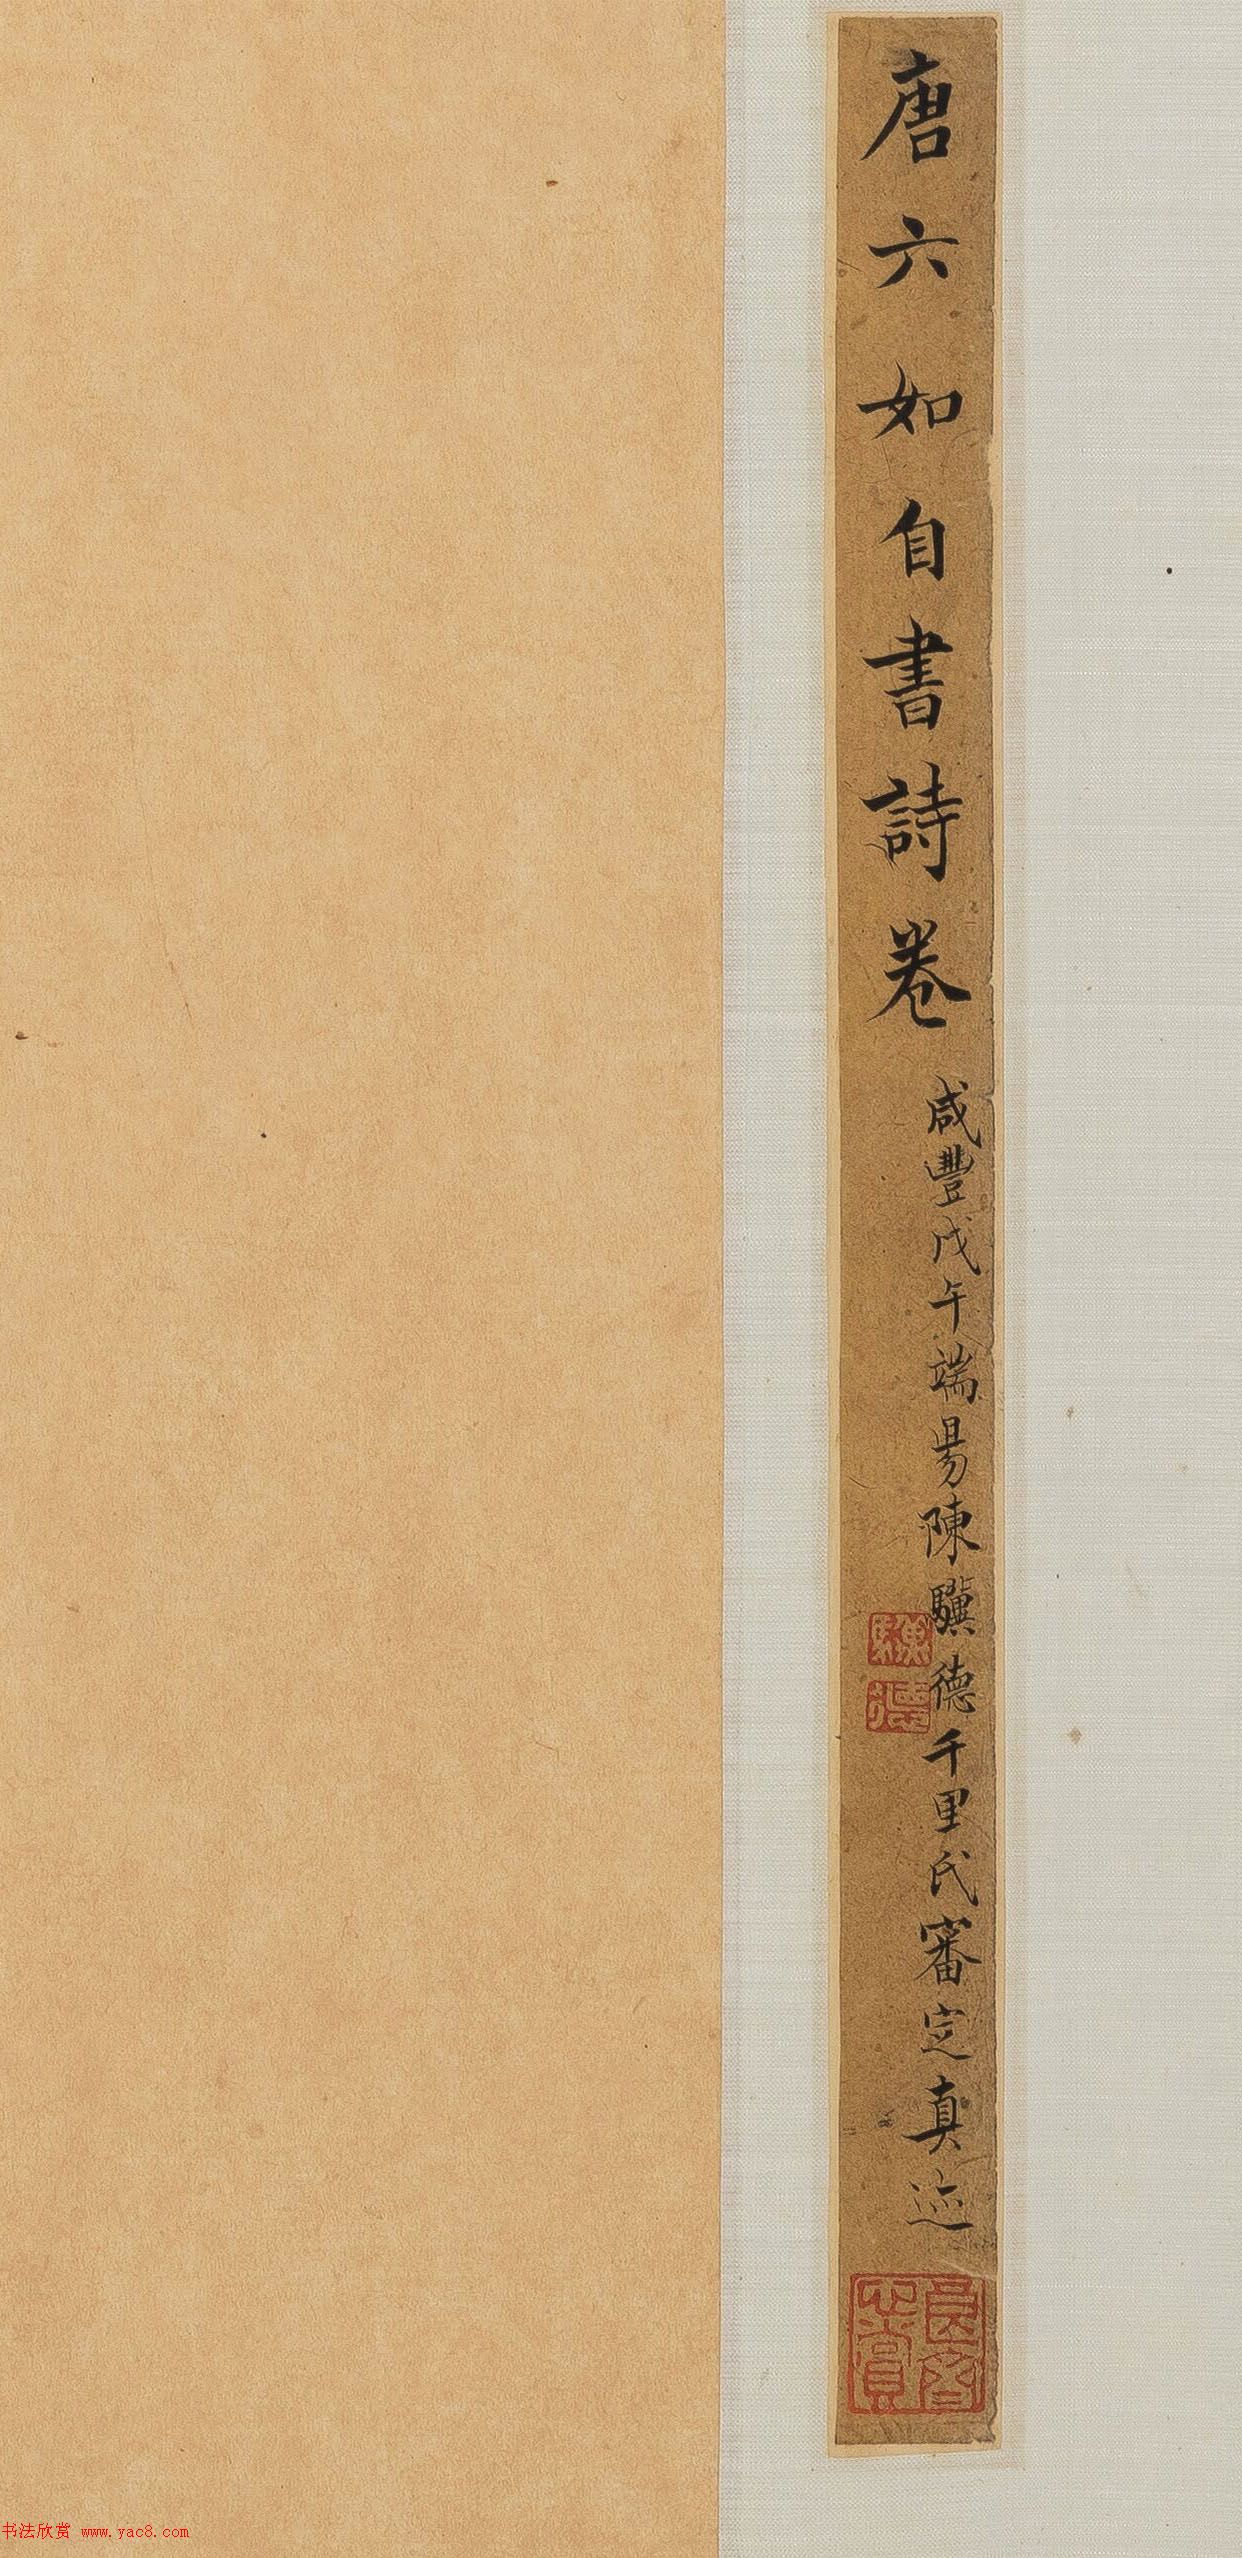 唐六如自書詩卷
咸豐戊午端昜陳驥德千里氏審定真迹
驥德
良齋心賞
书法欣赏 www.yac8.com